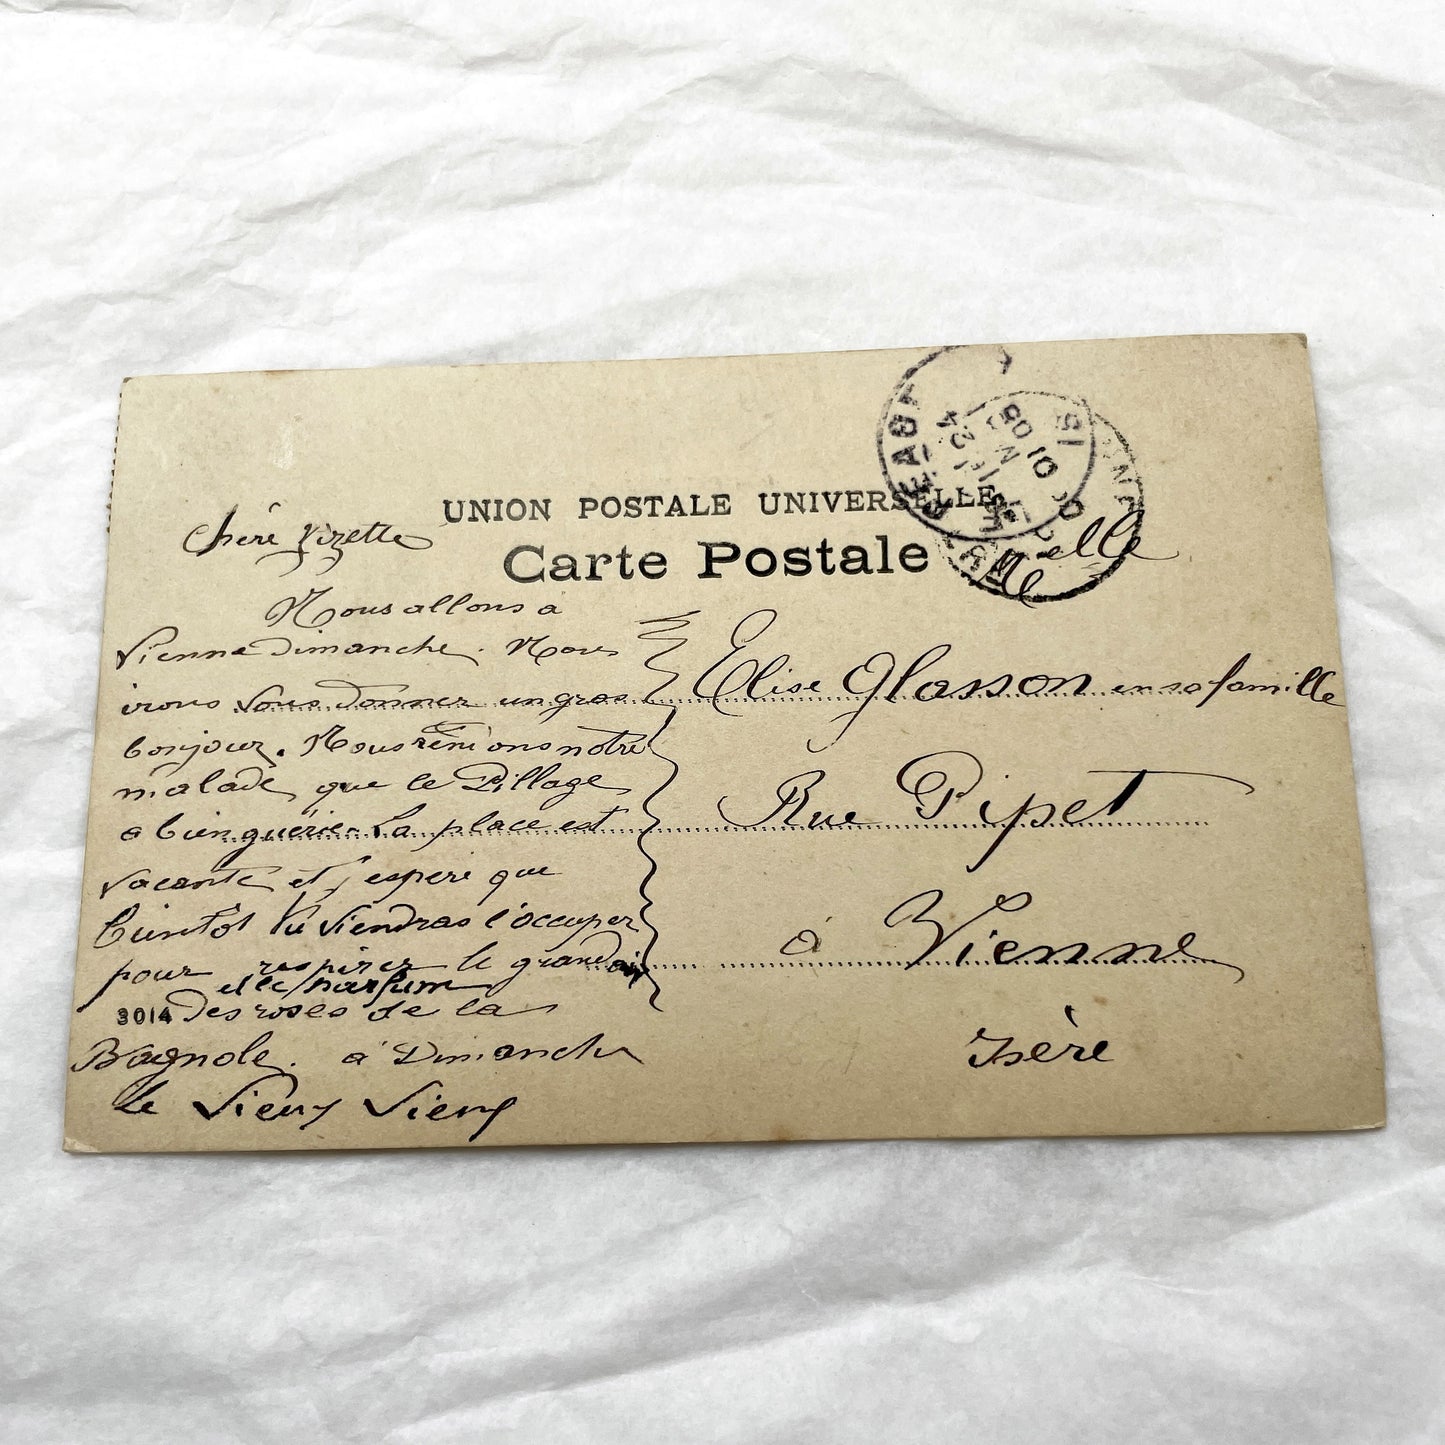 UNION POSTALE UNIVERSELLE
Carte Postale
Chère Zizette
Nous allons a
Vienne Dimanche. Nous
irons vous donner un gros
bonjour. Nous
malade que le
a bien guérie. La place est
vacante et j'espere que
bientôt tu viendras l'occuper
pour respirer le grand air
et le parfum
des roses de la
Bagnole. a Dimanche
le
3014
Melle
Elise Glasson en sa famille
Rue Pipet
à Vienne
Isère